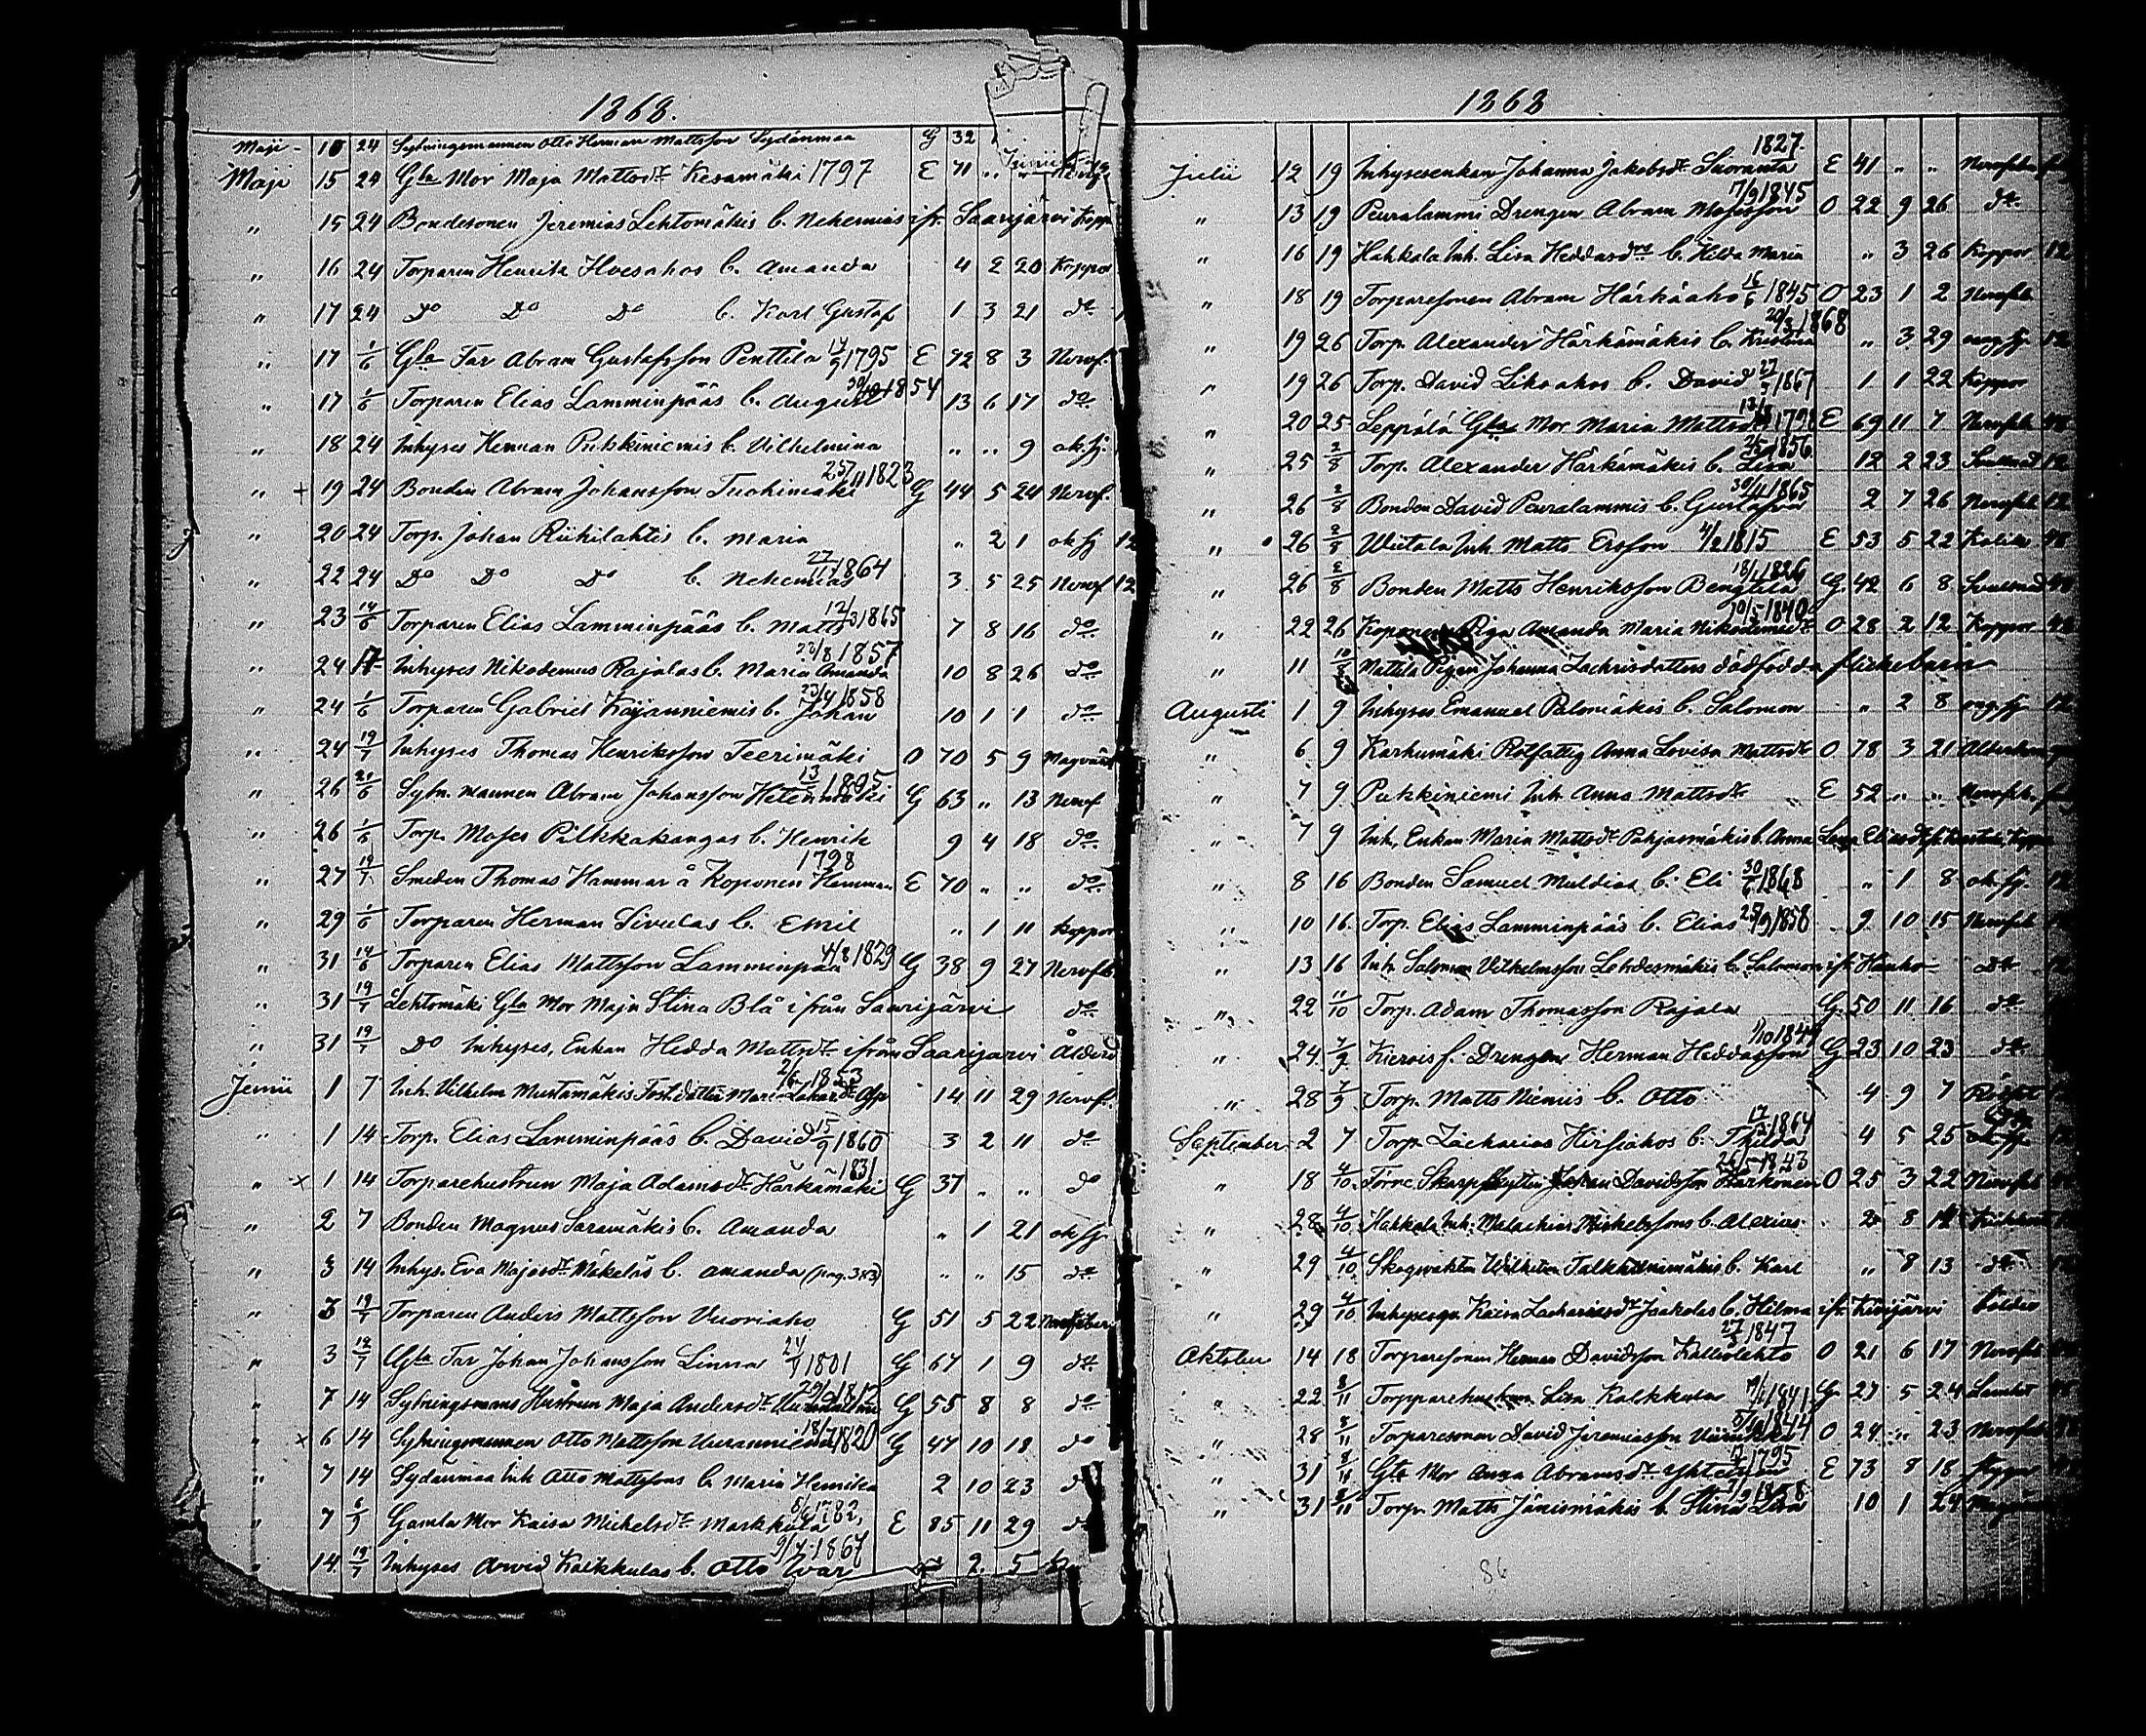 1868.
Maji - 10 24 Sytningsmannen Otto Herman Mattsson Sydänmaa G 32
Maji 15 24 Gla Mor Maja Mattsdr Kesämäki 1797 E 71 " "
" 15 24 Bondesonen Jeremias Lehtomäkis b. Nehemias ifr. Saarijärvi Kopp
" 16 24 Torparen Henrik Hvesahos b. Amanda 4 2 20 Koppor
" 17 24 Do Do Do b. Karl Gustaf 1 3 21 do
" 17 1/6 Gla Far Abram Gustafsson Penttilä 14/9 1795 E 72 8 3 Nervf.
" 17 1/6 Torparen Elias Lamminpääs b. August 30/10 1854 13 6 17 do
" 18 24 Inhyses Herman Pukkiniemis b. Vilhelmina " " 9 ok. sj.
" + 19 24 Bonden Abram Johansson Tuohimäki 25/11 1823 G 44 5 24 Nervf.
" 20 24 Torp. Johan Riihilahtis b. Maria " 2 1 ok sj 12
" 22 24 Do Do Do b. Nehemias 27/11 1864 3 5 25 Nervf 12
" 23 14/6 Torparen Elias Lamminpääs b. Matts 12/3 1865 7 8 16 do
" 24 17 Inhyses Nikodemus Rajalas b. Maria Amanda 22/8 1857 10 8 26 do
" 24 1/6 Torparen Gabriel Kojanniemis b. Johan 23/4 1858 10 1 1 do
" 24 19/7 Inhyses Thomas Henriksson Teerimäki O 70 5 9 Magvärk
" 26 21/6 Sytn. mannen Abram Johansson 13 1805 G 63 " 13 Nervf
" 26 1/6 Torp. Moses Pälkkäkangas b. Henrik 9 4 18 do
" 27 19/7 Smeden Thomas Hammar å Koponen Hamman 1798 E 70 " " do
" 29 1/6 Torparen Herman Sivulas b. Emil " 1 11 Koppor
" 31 14/6 Torparen Elias Mattsson Lamminpää 4/8 1829 G 38 9 27 Nervfb
" 31 19/7 Lehtomäki Gla Mor Maja Stina Blå ifrån Saarijärvi do
" 31 19/7 Do Inhyses, Enkan Hedda Mattsdr ifrån Saarijärvi Ålderd
Junii 1 7 Inh. Vilhelm Mustamäkis Fost. dotter Maria 2/6 1853 14 11 29 Nervf.
" 1 14 Torp. Elias Lamminpääs b. David 15/9 1860 3 2 11 do
" x 1 14 Torparehustrun Maja Adamsdr Härkämäki 1831 G 37 " " do
" 2 7 Bonden Magnus Saramäkis b. Amanda " 1 21 ok sj.
" 3 14 Inhys. Eva Majasdr Mäkeläs b. Amanda (pag. 383) " " 15 do
" 3 19/7 Torparen Anders Mattsson Vuoriaho G 51 5 22 Nervfeber
" 3 12/7 Gla Far Johan Johansson Linna 24/4 1801 G 67 1 9 do
" 7 14 Sytningsmans Hustrun Maja Andersdr 1812 G 55 8 8 do
" x 6 14 Sytningsmannen Otto Mattsson 18/7 1820 G 47 10 18 do
" 7 14 Sydänmaa Inh. Otto Mattssons b. Maria Henrika 2 10 23 d
" 7 5/7 Gamla Mor Kaisa Mickelsdr Markkula 8/6 1782, E 85 11 29 d
" 14 19/7 Inhyses Arvid Kalkkulas b. Otto Ivar 9/4 1867 2 5
1868
Julii 12 19 Inhysesenkan Johanna Jakobsdr Suoranta 1827 E 41 " " Nervfeber
" 13 19 Peuralammi Drengen Abram Mosesson 7/9 1845 O 22 9 26 do
" 16 19 Hakkala Inh. Lisa Heddasdrs b. Hilda Maria " 3 26 Koppor 12
" 18 19 Torparesonen Abram Härkäaho 16/6 1845 O 23 1 2 Nervfeb
" 19 26 Torp. Alexander Härkämäkis b. Kristina 20/3 1868 " 3 29 ang. sj. 12
" 19 26 Torp. David Liksahos b. David 27 1867 1 1 22 Koppor
" 20 25 Leppälä Gla Mor Maria Mattsdr 13/8 1798 E 69 11 7 Nervfeb
" 25 2/8 Torp. Alexander Härkämäkis b. Lisa 1856 12 2 23 12
" 26 2/8 Bonden David Peuralammis b. Gustafva 30/11 1865 2 7 26 Nervfeb 12
" 26 2/8 Wiitala Inh. Matts Ersson 4/2 1815 E 53 5 22
" 26 2/8 Bonden Matts Henriksson Bengtila 18/1 1826 G. 42 6 8
" 22 26 Koponen Piga Amanda Maria Nikodemusdr 10/5 1840 O 28 2 12 Koppor
" 11 10/8 Mattila Pigan Johanna Zachrisdotters dödfödda flickebarn
Augusti 1 9 Inhyses Emanuel Palomäkis b. Salomon " 2 8 ang. sj 12
" 6 9 Karhumäki Rotfattig Anna Lovisa Mattsdr O 78 3 21
" 7 9 Pukkiniemi Inh. Anna Mattsdr E 52 " " Nervfeb.
" 7 9 Inh. Enkan Maria Mattsdr Pohjasmäkis b. Anna Lena
" 8 16 Bonden Samuel Muldias b. Eli 30/6 1868 " 1 8 ok. sj. 12
" 10 16 Torp. Elias Lamminpääs b. Elias 25/9 1858 9 10 15 Nervfeb
" 13 16 Inh. Salomon Vilhelmsson Lehdesmäkis b. Salomon ifr. Hanko do
" 22 11/10 Torp. Adam Thomasson Rajala G. 50 11 16 do
" 24 7/9 Kierois f. Drengen Herman Heddasson 1/10 1844 G 23 10 23 do
" 28 7/9 Torp. Matts Niemis b. Otto 4 9 7
September 2 7 Torp. Zacharias Hirsiahos b. Thilda 17 1864 4 5 25
" 18 4/10 Törne Skarpskytten Johan Davidsson Härkönen 26/5 1843 O 25 3 22 Nervfeb
" 28 4/10 Hakkala Inh. Malachias Mickelssons b. Alexius 2 8 14
" 29 4/10 Skogvakten Wilhelm Talkkunimäkis b. Karl " 8 13 do
" 29 4/10 Inhysesqv. Kaisa Zachariasdr Jaakolas b. Hilma ifr. Kivijärvi bölder
Oktober 14 18 Torparesonen Herman Davidsson Kalliolehto 27 1847 O 21 6 17 Nervfeb
" 22 8/11 Torparehustrun Lisa Kalkkula 1841 G. 27 5 24
" 28 8/11 Torparesonen David Jeremiasson 5/10 1844 O 24 " 23 Nervfeb
" 31 8/11 Gla Mor Anna Abramsdr 1795 E 73 8 18
" 31 8/11 Torp. Matts Jänismäkis b. Stina Lisa 7/9 1858 10 1 24
86